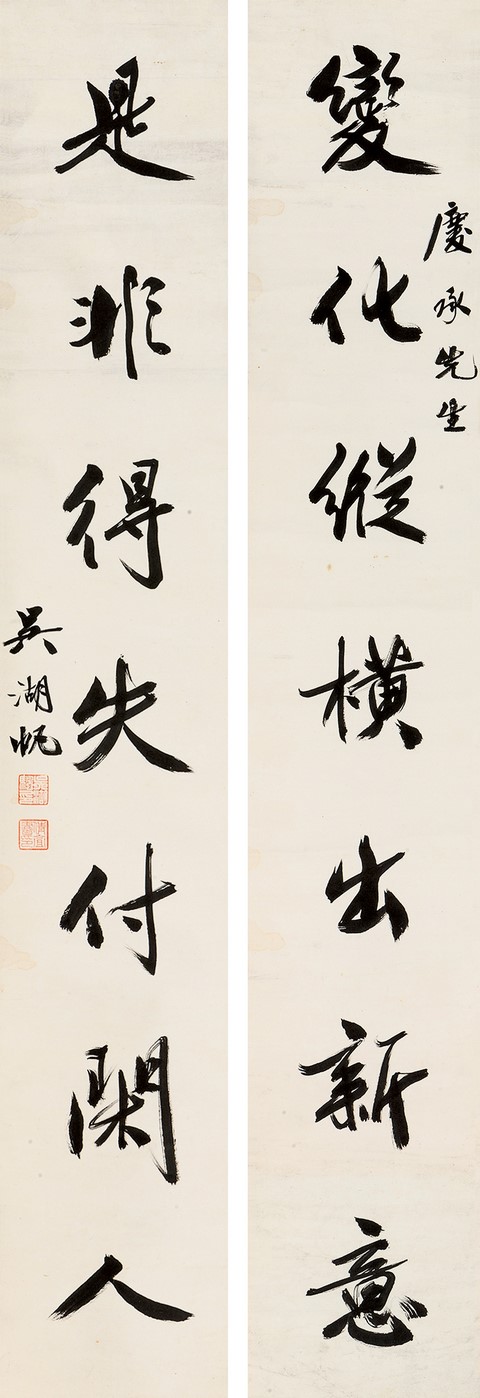 變化縱橫出新意
慶承先生
是非得失付閑人
吳湖帆